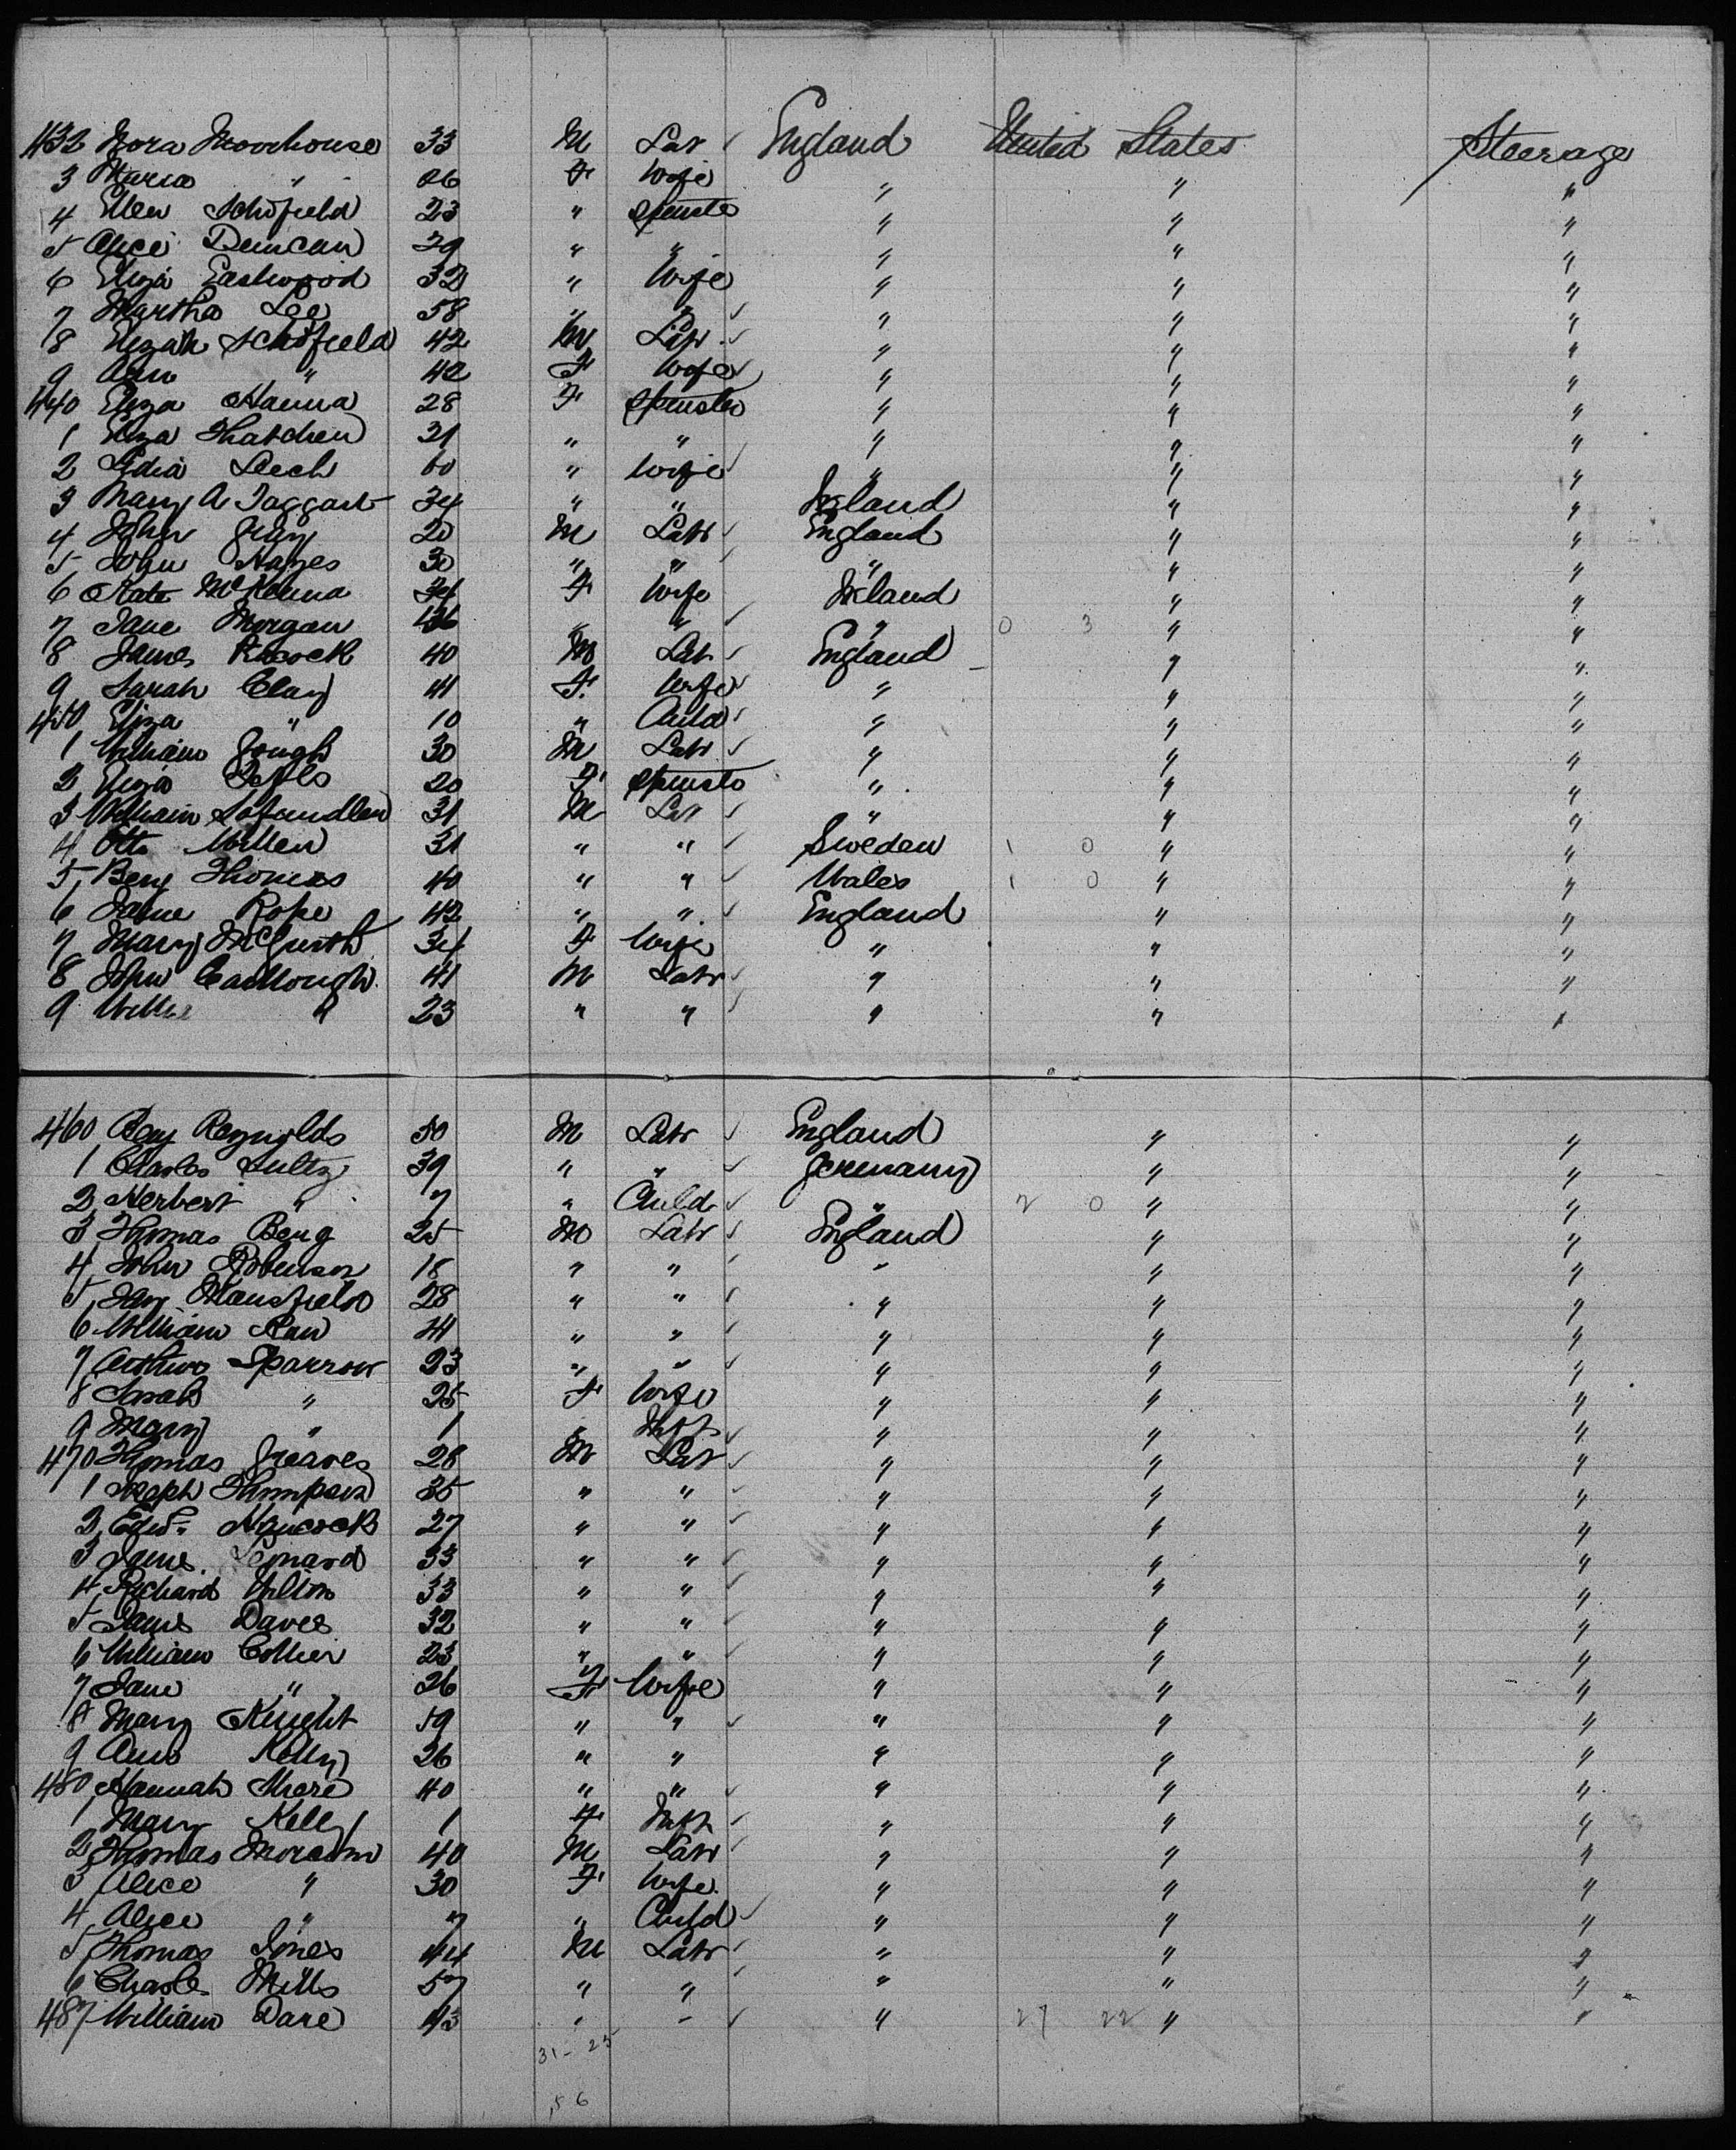 432 Nora Moorhouse 33 M Lab England United States Steerage
3 Maria " 26 F Wife " " "
4 Ellen Schofield 23 " Spinster " " "
5 Alice Duncan 29 " " " " "
6 Eliza Eastwood 32 " Wife " " "
7 Martha Lee 58 " " " " "
8 Schofield 42 M Labr " " "
9 Ann " 42 F Wife " " "
440 Eliza Hanna 28 F Spinster " " "
1 Eliza Thatcher 21 " " " " "
2 Lydia Leech 60 " Wife " " "
3 Mary A Taggart 34 " " Ireland " "
4 John Gray 20 M Labr England " "
5 John Hayes 30 " " " " "
6 Kate McKenna 34 F Wife Ireland " "
7 Jane Morgan " " " 0 3 " "
8 James 40 M Lab England " "
9 Sarah Clay 41 F. Wife " " "
450 Eliza " 10 " Child " " "
1 William Gough 30 M Labr " " "
2 Eliza 20 F Spinster " " "
3 William 31 M Lab " " "
4 Otto 31 " " Sweden 1 0 " "
5 Benj Thomas 40 " " Wales 1 0 " "
6 Jame Rope 42 " " England " "
7 Mary 34 F Wife " " "
8 John 41 M Labr " " "
9 " 23 " " " " "
460 Benj Reynolds 50 M Labr England " "
1 Charles Sultz 39 " " Germany " "
2 Herbert " 7 " Child " 2 0 " "
3 Thomas Berry 25 M Labr England " "
4 John Robinson 18 " " " " "
5 Mansfield 28 " " " " "
6 William Raw " " " " "
7 Arthur Sparrow 23 " " " " "
8 Sarah " 25 F Wife " " "
9 Mary " 1 " Inft " " "
470 Thomas Greaves 28 M Lab " " "
1 Joseph Thompson 35 " " " " "
2 Edwd Hancock 27 " " " " "
3 James Leonard 33 " " " " "
4 Richard Wilson 33 " " " " "
5 James Daves 32 " " " " "
6 William Collier 23 " " " " "
7 Jane " 26 F Wife " " "
8 Mary Knight 59 " " " " "
9 Ann Kelly 26 " " " " "
480 Hannah 40 " " " " "
1 Mary Kelly 1 F Inft " " "
2 Thomas 40 M Labr " " "
3 Alice " 30 F Wife " " "
4 Alice " 7 " Child " " "
5 Thomas Jones 44 M Labr " " "
6 Charles Mills 57 " " " " "
487 William Dare 43 " " " 27 22 " "
31 - 25
56